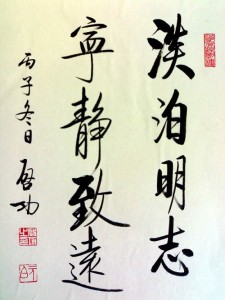 淡泊明志
寧静致遠
丙子冬日
啓功